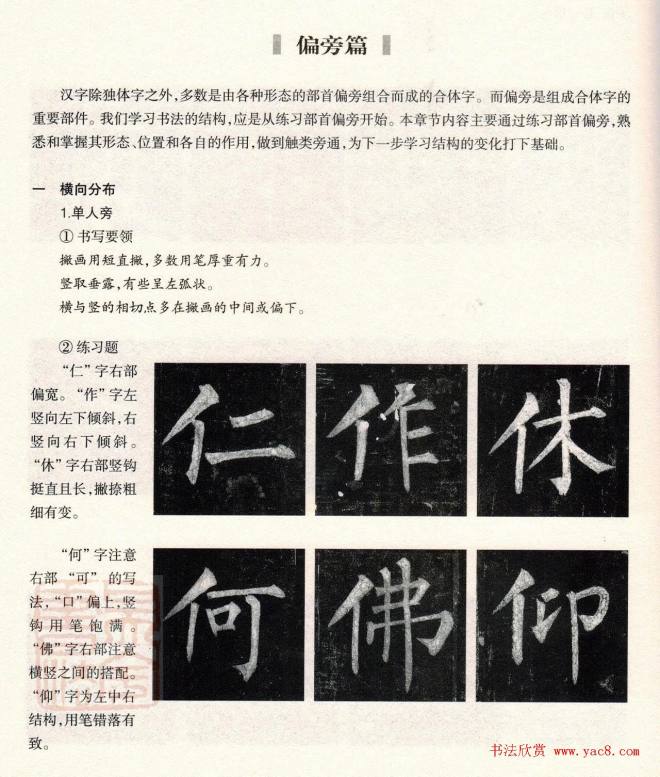 偏旁篇
汉字除独体字之外，多数是由各种形态的部首偏旁组合而成的合体字。而偏旁是组成合体字的
重要部件。我们学习书法的结构，应是从练习部首偏旁开始。本章节内容主要通过练习部首偏旁，熟
悉和掌握其形态、位置和各自的作用，做到触类旁通，为下一步学习结构的变化打下基础。
一 横向分布
1.单人旁
① 书写要领
撇画用短直撇，多数用笔厚重有力。
竖取垂露，有些呈左弧状。
横与竖的相切点多在撇画的中间或偏下。
② 练习题
“仁”字右部
偏宽。“作”字左
竖向左下倾斜，右
竖向右下倾斜。
“休”字右部竖钩
挺直且长，撇捺粗
细有变。
仁 作 休
“何”字注意
右部“可”的写
法，“口”偏上，竖
钩用笔饱满。
“佛”字右部注意
横竖之间的搭配。
“仰”字为左中右
结构，用笔错落有
致。
何 佛 仰
书法欣赏 www.yac8.com